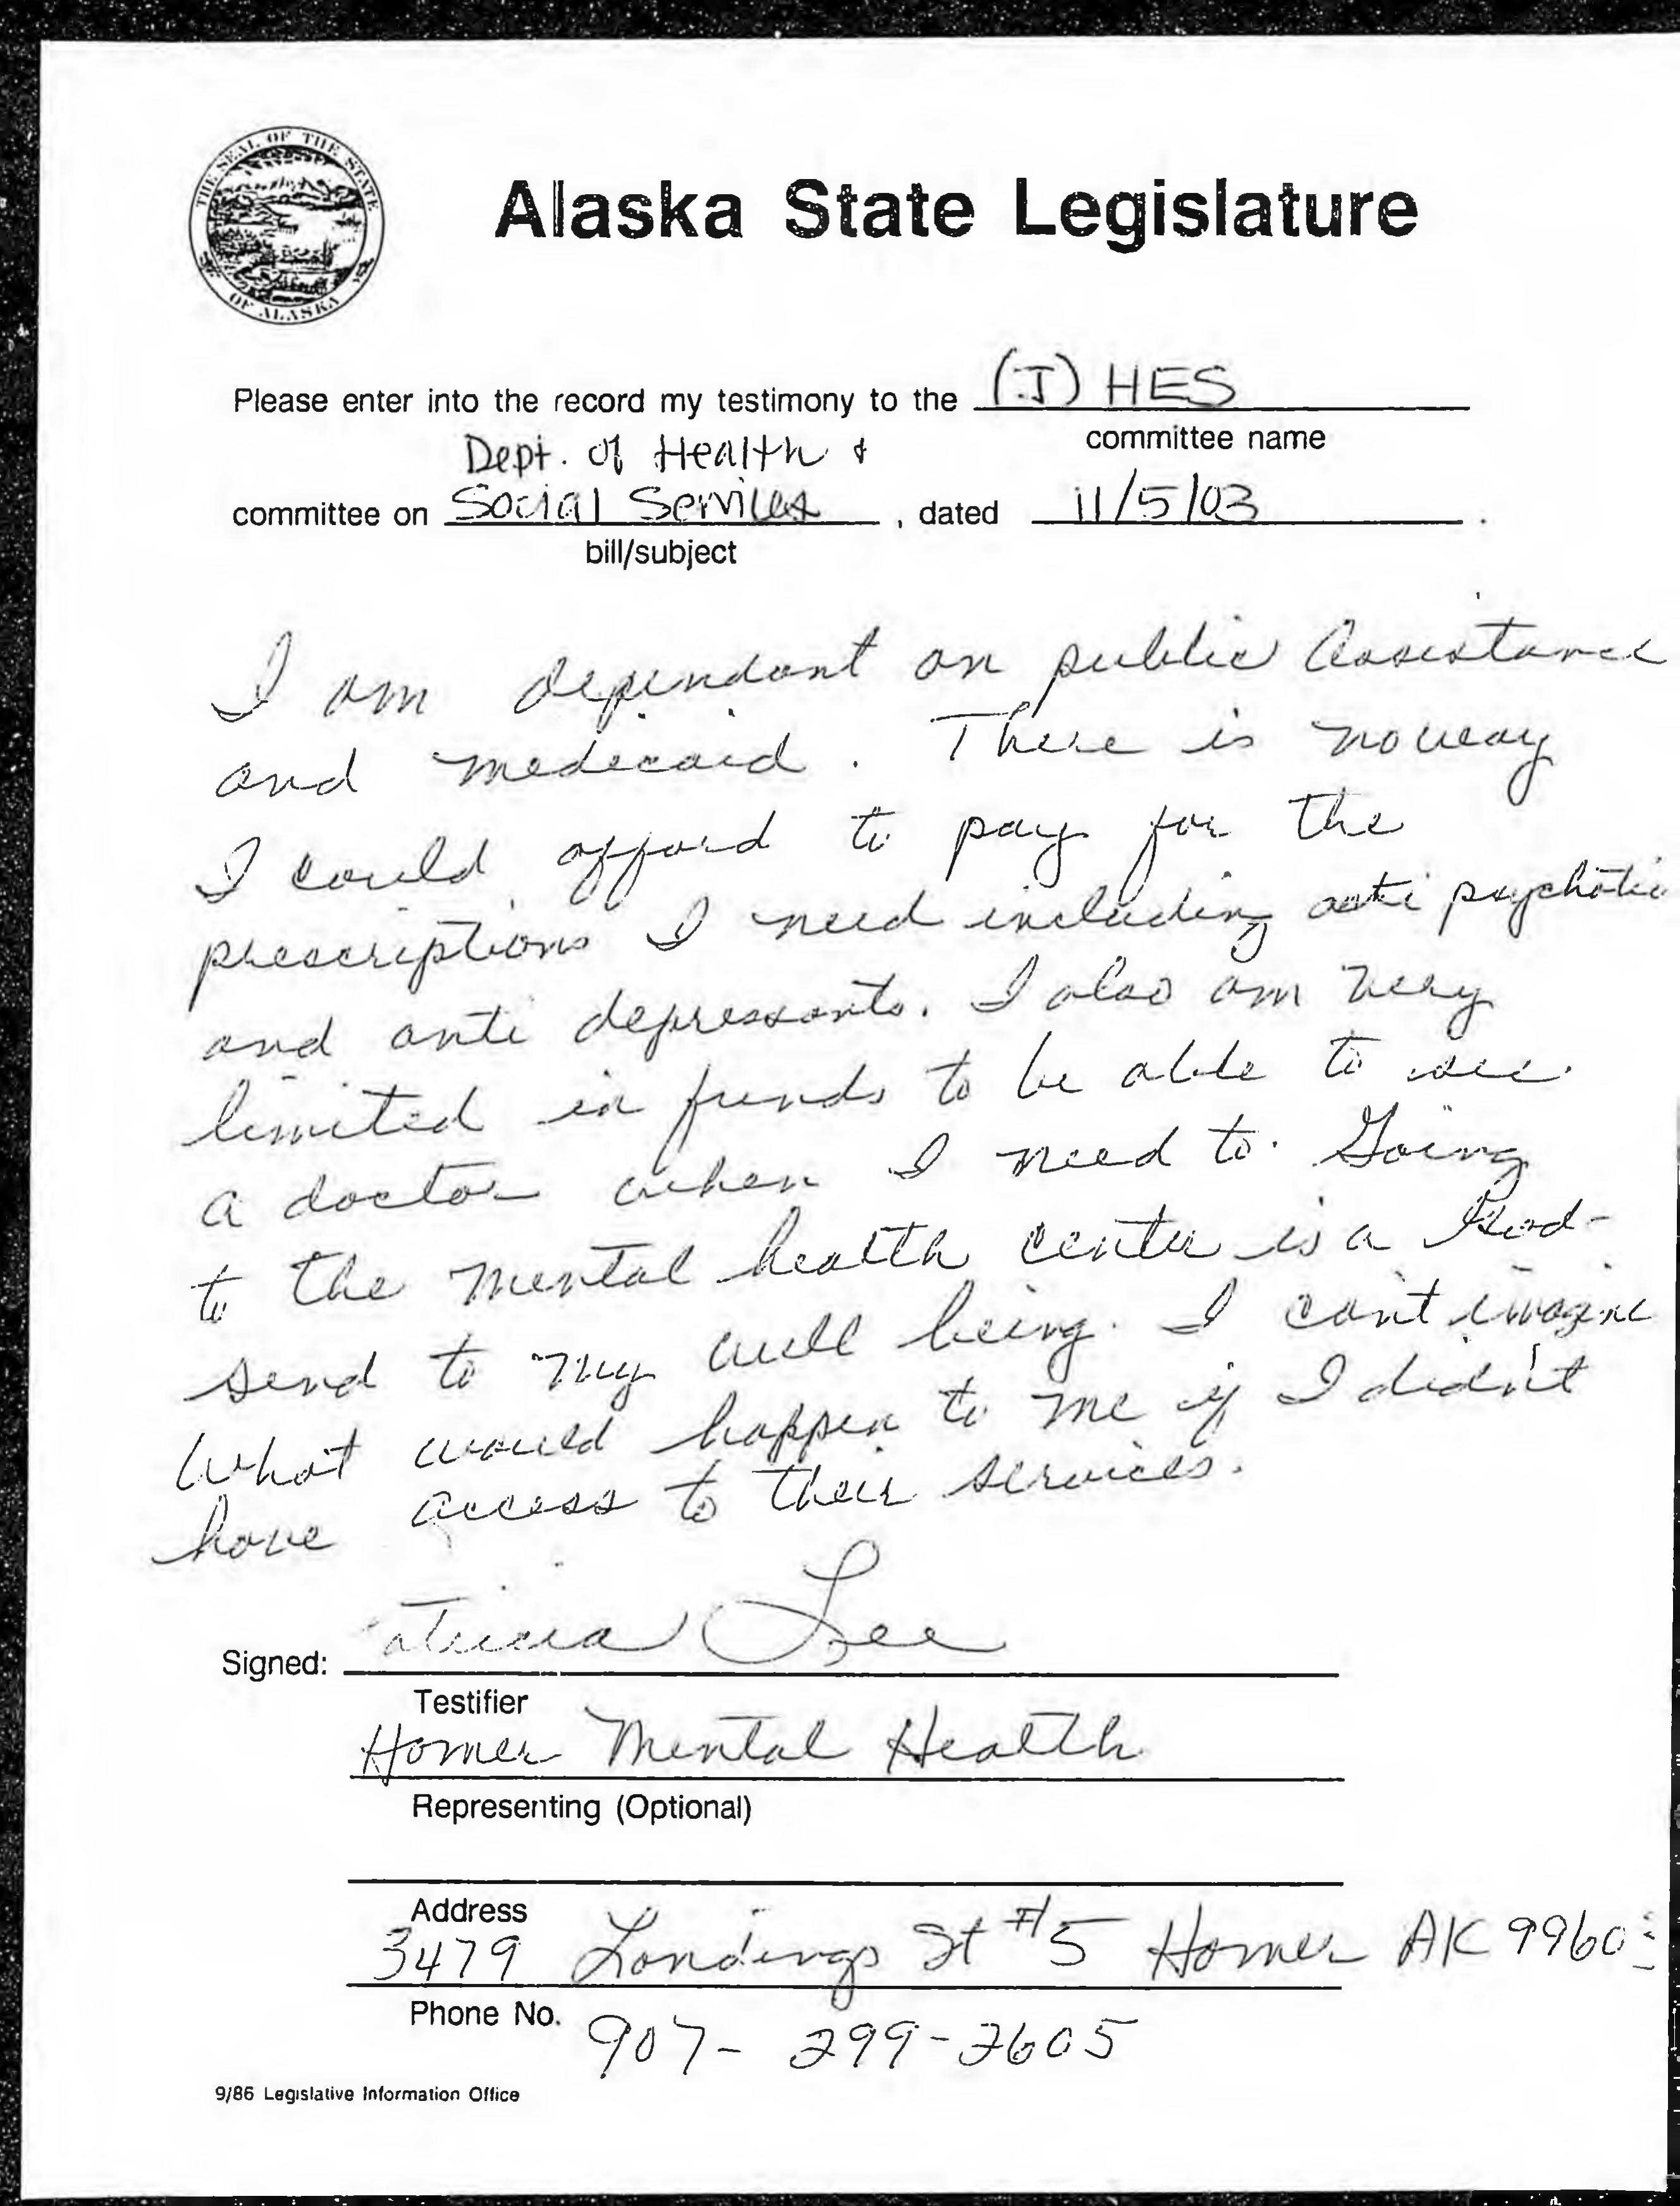 THE SEAL OF THE STATE
OF ALASKA
Alaska State Legislature
Please enter into the record my testimony to the (J) HES
committee name
Dept. of Health &
committee on Social Services, dated 11/5/03.
bill/subject
I am dependant on public assistance
and medicaid. There is no way
I could afford to pay for the
prescriptions I need including anti psychotic
and anti depressants. I also am very
limited in funds to be able to see
a doctor when I need to. Going
to the mental health center is a God-
send to my well being. I can't imagine
what would happen to me if I didn't
have access to their services.
Signed: Patricia Lee
Testifier
Homer Mental Health
Representing (Optional)
Address
3479 Landings St #5 Homer AK 9960
Phone No. 907-299-2605
9/86 Legislative Information Office